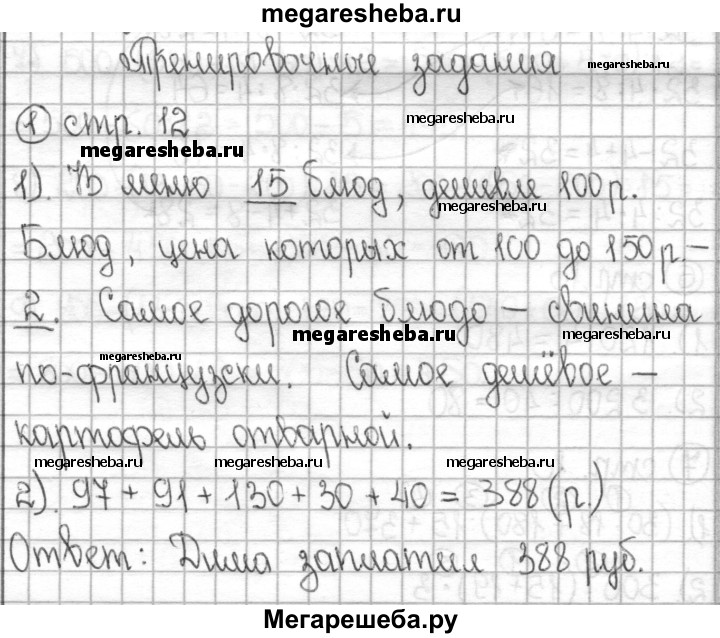 megaresheba.ru
Тренировочные задания megaresheba.ru
1 стр. 12 megaresheba.ru
megaresheba.ru
1). В меню 15 блюд, дешевле 100 р.
megaresheba.ru
Блюд, цена которых от 100 до 150 р. –
2. Самое дорогое блюдо – свинина
megaresheba.ru megaresheba.ru
megaresheba.ru
по-французски. Самое дешёвое –
картофель отварной.
megaresheba.ru megaresheba.ru megaresheba.ru
2). 97 + 91 + 130 + 30 + 40 = 388 (р.)
Ответ: Дима заплатил 388 руб.
Мегарешеба.ру